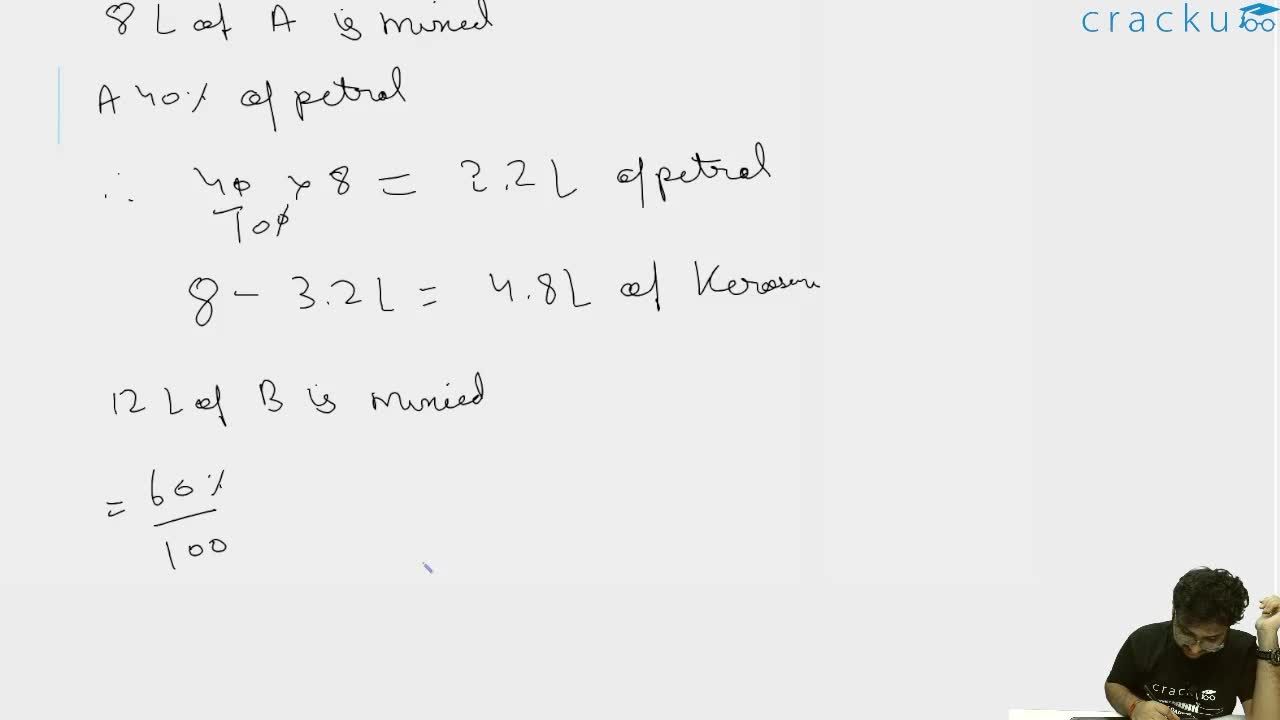 cracku
8 L of A is mixed
A 40% of petrol
∴ 40/100 × 8 = 3.2 L of petrol
8 - 3.2 L = 4.8 L of Kerosene
12 L of B is mixed
= 60%/100
cracku